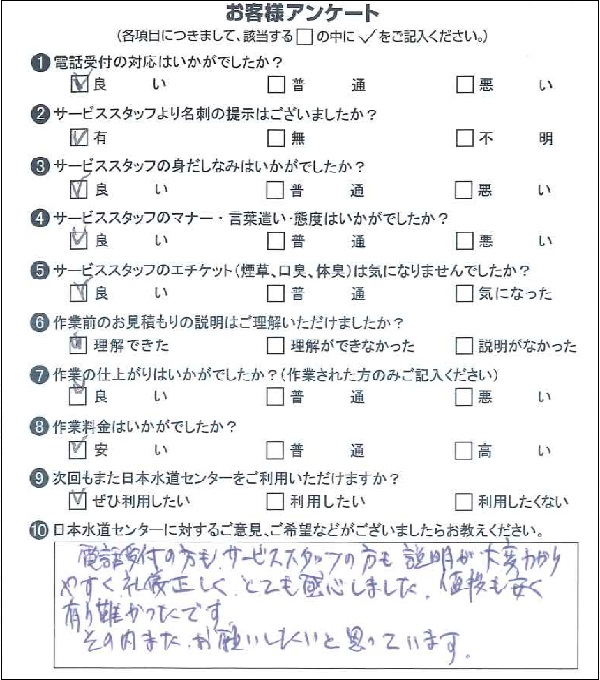 お客様アンケート
(各項目につきまして、該当する□の中に✓をご記入ください。)
❶ 電話受付の対応はいかがでしたか?
☑ 良い □ 普通 □ 悪い
❷ サービススタッフより名刺の提示はございましたか?
☑ 有 □ 無 □ 不明
❸ サービススタッフの身だしなみはいかがでしたか?
☑ 良い □ 普通 □ 悪い
❹ サービススタッフのマナー・言葉遣い・態度はいかがでしたか?
☑ 良い □ 普通 □ 悪い
❺ サービススタッフのエチケット(煙草、口臭、体臭)は気になりませんでしたか?
☑ 良い □ 普通 □ 気になった
❻ 作業前のお見積もりの説明はご理解いただけましたか?
☑ 理解できた □ 理解ができなかった □ 説明がなかった
❼ 作業の仕上がりはいかがでしたか?(作業された方のみご記入ください)
☑ 良い □ 普通 □ 悪い
❽ 作業料金はいかがでしたか?
☑ 安い □ 普通 □ 高い
❾ 次回もまた日本水道センターをご利用いただけますか?
☑ ぜひ利用したい □ 利用したい □ 利用したくない
❿ 日本水道センターに対するご意見、ご希望などがございましたらお教えください。
電話受付の方も、サービススタッフの方も説明が大変わかり
やすく、礼儀正しく、とても感心しました。値段も安く
有り難かったです。
その内また、お願いしたいと思っています。